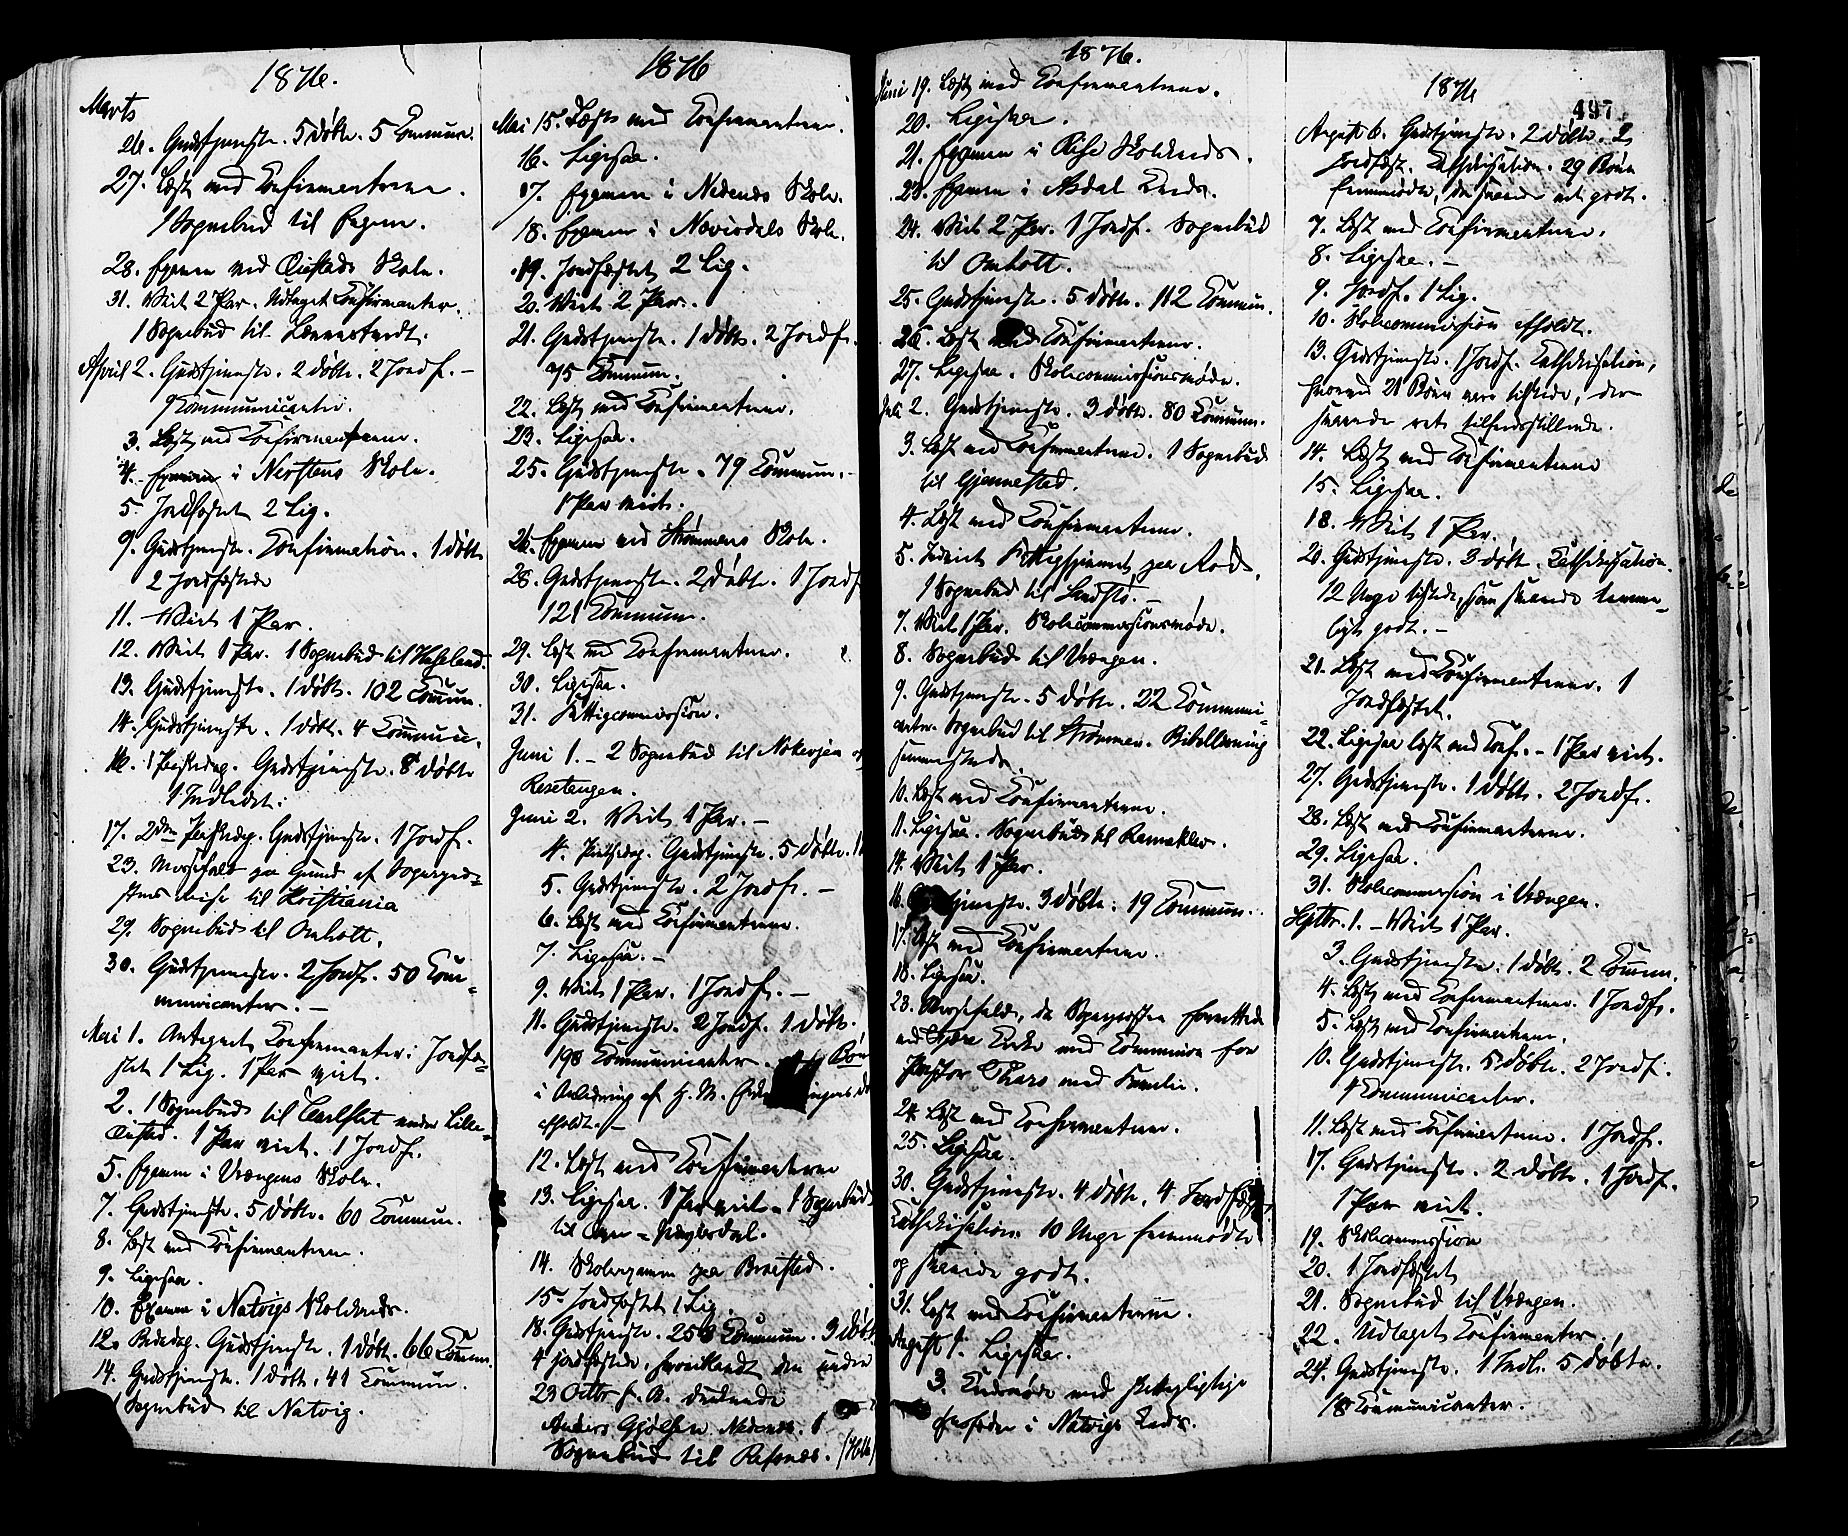 1876.
Marts
26. Gudstjeneste. 5 døbte. 5 Commun.
27. Læst med Confirmanterne.
1 Sognebud til
28. Examen ved Øiestads Skole.
31. Viet 2 Par. Udtaget Confirmanter.
1 Sognebud til
April 2. Gudstjeneste. 2 døbte. 2 Jordf. -
9 Kommunicanter.
3. Læst med Confirmanterne.
4. Examen i Nerstens Skole.
5. Jordfæstet 2 Lig.
9. Gudstjeneste. Confirmation. 1 døbt
2 Jordfæstede
11. Viet 1 Par.
12. Viet 1 Par. 1 Sognebud til Haseland.
13. Gudstjeneste. 1 døbt. 102 Commun.
14. Gudstjeneste. 1 døbt. 4 Commun.
16. 1 Paaskedag. Gudstjeneste. 8 døbte
1 Indledet.
17. 2den Paaskedag. Gudstjeneste. 1 Jordf.
23. Messefald paa Grund af Sognepræ-
stens Reise til Kristiania
29. Sognebud til Omholt.
30. Gudstjeneste. 2 Jordf. 50 Com-
municanter. -
Mai 1. Antegnet Confirmanter. Jordfæ-
stet 1 Lig. 1 Par viet.
2. 1 Sognebud til under Lille-
Øiestad. 1 Par viet. 1 Jordf.
5. Examen i Vrængens Skole.
7. Gudstjeneste. 5 døbte. 60 Commun.
8. Læst med Confirmanterne.
9. Ligesaa.
10. Examen i Natvigs Skolekreds.
12. Bededag. Gudstjeneste. 1 døbt. 66 Commun.
14. Gudstjeneste. 1 døbt. 41 Commun.
Sognebud til Natvig.
1876
Mai 15. Læst med Confirmanterne.
16. Ligesaa.
17. Examen i Nedenes Skole.
18. Examen i Skole.
19. Jordfæstet 2 Lig.
20. Viet 2 Par.
21. Gudstjeneste. 1 døbt. 2 Jordf.
75 Commun.
22. Læst med Confirmanterne.
23. Ligesaa.
25. Gudstjeneste. 79 Commun. -
1 Par viet.
26. Examen ved Strømmens Skole.
28. Gudstjeneste. 2 døbte. 1 Jordf
121 Commun.
29. Læst med Confirmanterne.
30. Ligesaa.
31. Fattigcommission.
Juni 1. - 2 Sognebud til og
Resetangen.
Juni 2. Viet 1 Par. -
4. Pintsedag. Gudstjeneste. 5 døbte.
5. Gudstjeneste. 2 Jordf. -
6. Læst med Confirmanterne.
7. Ligesaa. -
9. Viet 1 Par. 1 Jordf. -
11. Gudstjeneste. 2 Jordf. 1 døbt.
198 Communicanter. Bøn
i Anledning af H. M.
afholdt. -
12. Læst med Confirmanterne
13. Ligesaa. 1 Par viet. 1 Sognebud
til
14. Skoleexamen paa Braastad.
15. Jordfæstet 1 Lig.
18. Gudstjeneste. Commun. 3 døbt.
4 jordfæstede, hvoriblandt den under
23 Octbr f. A. druknede
Anders Nedenes. 1
Sognebud til Refsnes.
1876.
Juni 19. Læst med Confirmanterne.
20. Ligesaa.
21. Examen i Rise Skolekreds.
23. Examen i Asdal Kreds.
24. Viet 2 Par. 1 Jordf. Sognebud
til Omholt.
25. Gudstjeneste. 5 døbte. 112 Commun.
26. Læst med Confirmanterne.
27. Ligesaa. Skolecommissionsmøde.
Juli 2. Gudstjeneste. 3 døbte. 80 Commun.
3. Læst med Confirmanterne. 1 Sognebud
til Gjennestad.
4. Læst med Confirmanterne.
5. Indviet Fattighjemmet paa
1 Sognebud til
7. Viet 1 Par. Skolecommissionsmøde.
8. Sognebud til Vrængen.
9. Gudstjeneste. 5 døbte. 22 Communi-
canter. Sognebud til Strømmen. Bibellæsning
sammesteds.
10. Læst med Confirmanterne.
11. Ligesaa. Sognebud til
14. Viet 1 Par.
16. Gudstjeneste. 3 døbte. 19 Commun.
17. Læst med Confirmanterne.
18. Ligesaa.
23. Messefald, da Sognepræsten forrettede
ved Kirke med Communion for
Pastor med Familie.
24. Læst med Confirmanterne.
25. Ligesaa.
30. Gudstjeneste. 4 døbte. 4 Jordfæst.
Kathekisation. 10 Unge fremmødte
og svarede godt.
31. Læst med Confirmanterne.
August 1. Ligesaa.
3. med
i Natvigs Kreds.
1876
497
August 6. Gudstjeneste. 2 døbte. 2
Jordfæst. Kathekisation. 29 Børn
fremmødte, der svarede ret godt.
7. Læst med Confirmanterne.
8. Ligesaa. -
9. Jordf. 1 Lig.
10. Skolecommission afholdt.
13. Gudstjeneste. 1 Jordf. Kathekisation,
hvorved 21 Børn vare tilstede, der
svarede ret tilfredsstillende.
14. Læst med Confirmanterne
15. Ligesaa.
18. Viet 1 Par.
20. Gudstjeneste. 3 døbt. Kathekisation.
12 Unge tilstede, som svarede temme-
ligt godt. -
21. Læst med Confirmanterne. 1
Jordfæstet.
22. Ligesaa læst med Conf. - 1 Par viet.
27. Gudstjeneste. 1 døbt. 2 Jordf.
28. Læst med Confirmanterne.
29. Ligesaa.
31. Skolecommission i Vrængen.
Septbr. 1. - Viet 1 Par.
3. Gudstjeneste. 1 døbt. 2 Commun.
4. Læst med Confirmanterne. 1 Jordf.
5. Læst med Confirmanterne.
10. Gudstjeneste. 5 døbte. 2 Jordf.
4 Communicanter.
11. Læst med Confirmanterne. 1 Jordf.
17. Gudstjeneste. 2 døbte. 1 Jordf.
1 Par viet.
19. Skolecommission
20. 1 Jordfæstet
21. Sognebud til Vrængen.
22. Udtaget Confirmanter.
24. Gudstjeneste. 1 Indl. 5 døbte.
18 Communicanter.